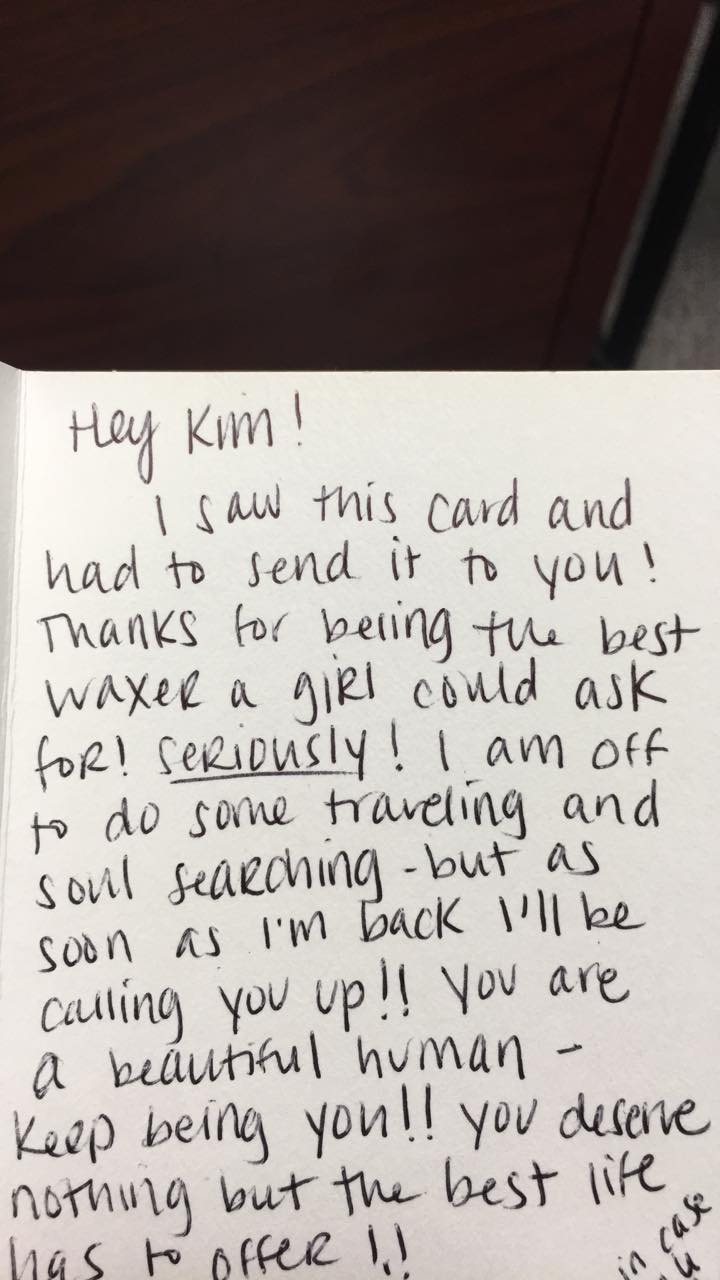 Hey Kim!
I saw this card and
had to send it to you!
Thanks for being the best
waxer a girl could ask
for! Seriously! I am off
to do some traveling and
soul searching - but as
soon as I'm back I'll be
calling you up!! You are
a beautiful human -
Keep being you!! You deserve
nothing but the best life
has to offer!!
in case